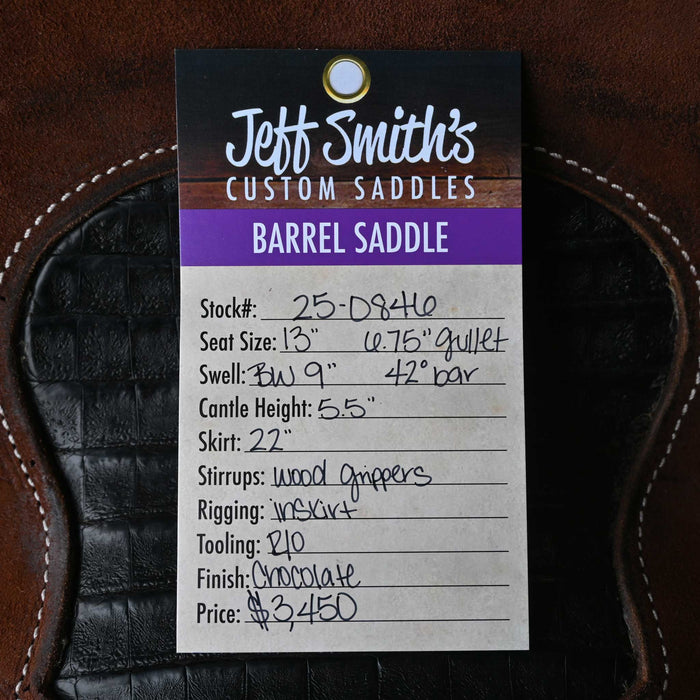 Jeff Smith's
CUSTOM SADDLES
BARREL SADDLE
Stock#: 25-0846
Seat Size: 13" 6.75" gullet
Swell: BW 9" 42° bar
Cantle Height: 5.5"
Skirt: 22"
Stirrups: wood grippers
Rigging: inskirt
Tooling: R/O
Finish: Chocolate
Price: $3,450